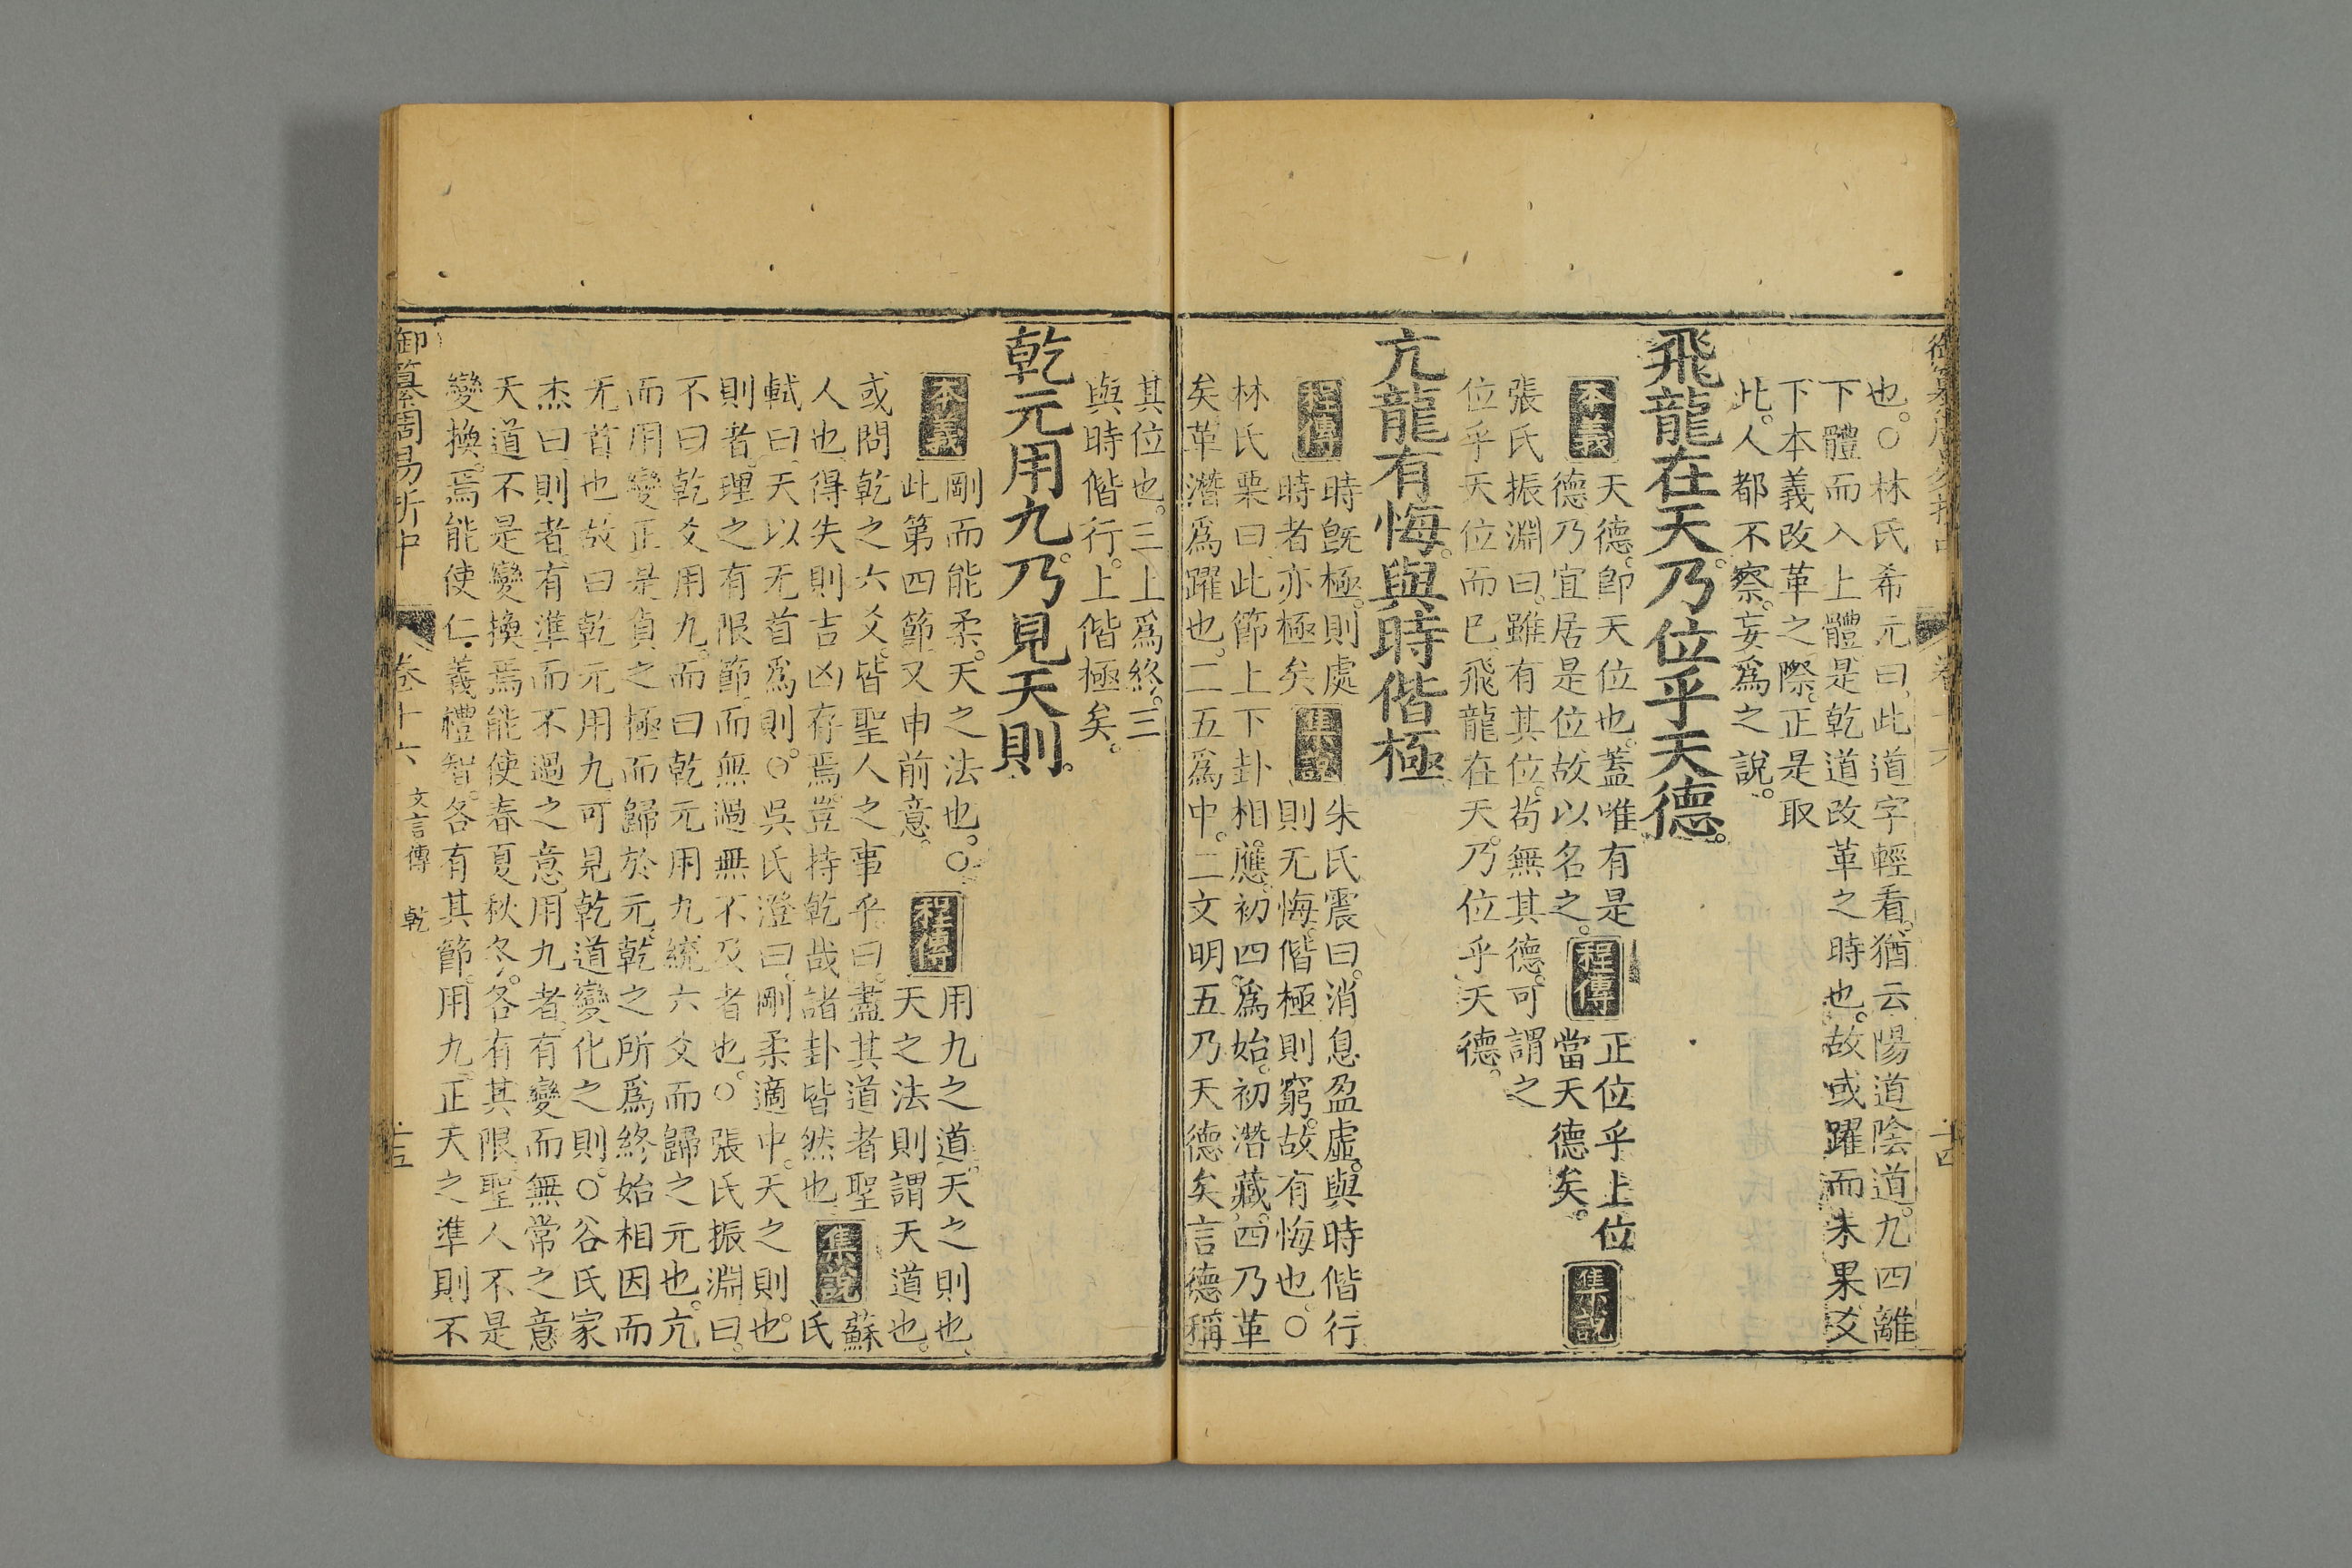 也。○林氏希元曰、此道字輕看。猶云陽道陰道。九四離
下體而入上體是乾道改革之時也。故或躍而未果爻
下本義改革之際。正是取
此。人都不察。妄爲之說。
飛龍在天。乃位乎天德。
本義
天德。卽天位也。蓋唯有是
德乃宜居是位故以名之。
程傳
正位乎上位
當天德矣。
集說
張氏振淵曰。雖有其位。苟無其德。可謂之
位乎天位而已。飛龍在天。乃位乎天德。
亢龍有悔。與時偕極
程傳
時旣極。則處
時者亦極矣
集說
朱氏震曰。消息盈虛。與時偕行
則无悔。偕極則窮。故有悔也。○
林氏栗曰、此節上下卦相應。初四爲始。初潛藏。四乃革
矣革潛爲躍也。二五爲中。二文明五乃天德矣言德稱
其位也。三上爲終。三
與時偕行。上偕極矣。
乾元用九。乃見天則。
本義
剛而能柔。天之法也。○
此第四節。又申前意。
程傳
用九之道。天之則也、
天之法則謂天道也。
或問乾之六爻。皆聖人之事乎曰。盡其道者聖
人也。得失則吉凶存焉。豈持乾哉諸卦皆然也
集說
蘇
氏
軾曰、天以无首爲則。○吳氏澄曰、剛柔適中。天之則也。
則者。理之有限節。而無過無不及者也。○張氏振淵曰。
不曰乾爻用九。而曰乾元用九統六爻而歸之元也。亢
而用變正是貞之極而歸於元、乾之所爲終始相因而
无首也。故曰乾元用九可見乾道變化之則。○谷氏家
杰曰、則者有準而不過之意、用九者。有變而無常之意
天道不是變換焉能使春夏秋冬。各有其限。聖人不是
變換。焉能使仁・義禮智。各有其節。用九。正天之準則不
御纂周易折中
卷十六
文言傳 乾
十五